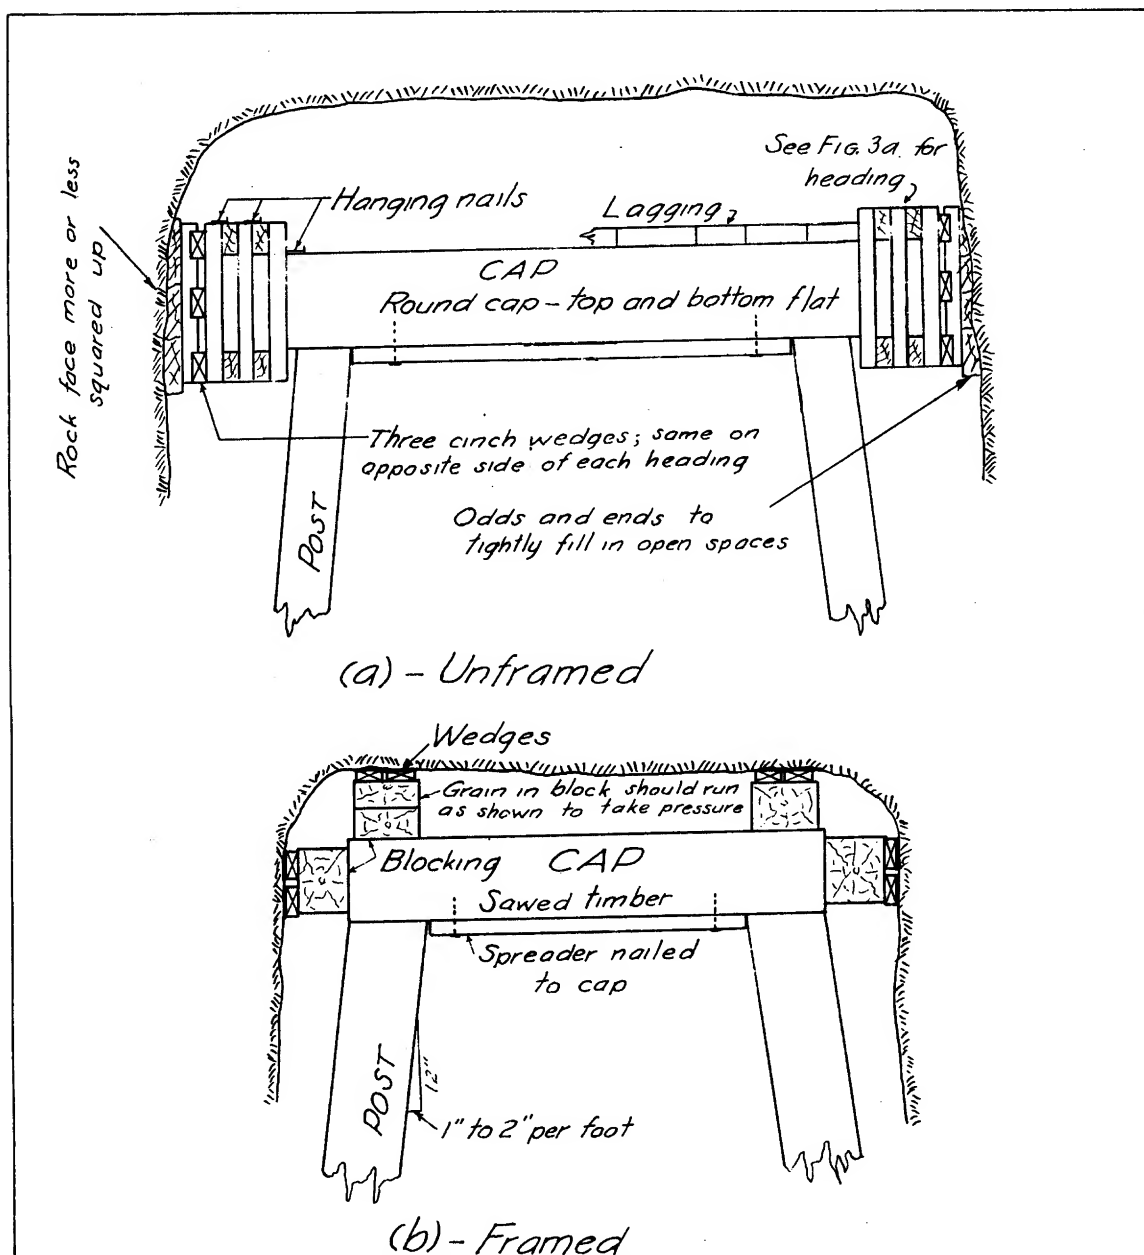 See FIG. 3a for
heading
Rock face more or less
squared up
Hanging nails
Lagging
CAP
Round cap - top and bottom flat
Three cinch wedges; same on
opposite side of each heading
POST
Odds and ends to
tightly fill in open spaces
(a) - Unframed
Wedges
Grain in block should run
as shown to take pressure
Blocking
CAP
Sawed timber
Spreader nailed
to cap
POST
12"
1" to 2" per foot
(b) - Framed